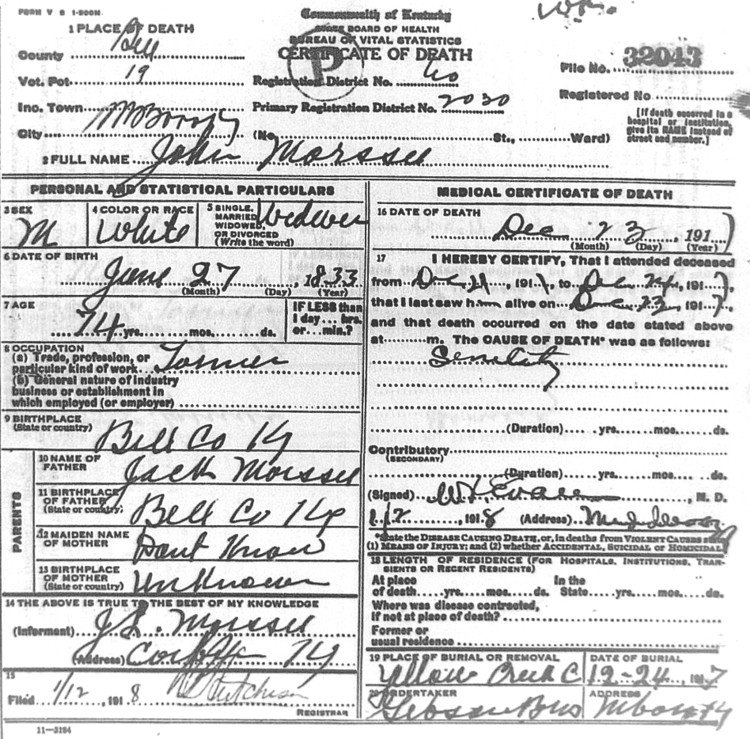 FORM V S 1-500M.
Commonwealth of Kentucky
STATE BOARD OF HEALTH
BUREAU OF VITAL STATISTICS
CERTIFICATE OF DEATH
1 PLACE OF DEATH
County Bell
Vot. Pct 19
Inc. Town
City (No. St., Ward)
Registration District No. 60
Primary Registration District No. 2030
File No. 32043
Registered No.
[If death occurred in a
hospital or institution,
give its NAME instead of
street and number.]
2 FULL NAME John Morssee
PERSONAL AND STATISTICAL PARTICULARS
3 SEX
M
4 COLOR OR RACE
White
5 SINGLE,
MARRIED,
WIDOWED,
OR DIVORCED
(Write the word)
Widower
6 DATE OF BIRTH
June 27, 1833
(Month) (Day) (Year)
7 AGE
74 yrs. mos. ds.
IF LESS than
1 day... hrs.
or... min.?
8 OCCUPATION
(a) Trade, profession, or
particular kind of work
(b) General nature of industry
business or establishment in
which employed (or employer)
9 BIRTHPLACE
(State or country) Bell Co Ky
PARENTS
10 NAME OF
FATHER Jack Morssee
11 BIRTHPLACE
OF FATHER
(State or country) Bell Co Ky
12 MAIDEN NAME
OF MOTHER Dont Know
13 BIRTHPLACE
OF MOTHER
(State or country) Unknown
14 THE ABOVE IS TRUE TO THE BEST OF MY KNOWLEDGE
(Informant) Morssee
(Address) Ky
15
Filed 1/12, 1918 Hutchison
REGISTRAR
11—3184
MEDICAL CERTIFICATE OF DEATH
16 DATE OF DEATH
Dec 23, 1917
(Month) (Day) (Year)
17 I HEREBY CERTIFY, That I attended deceased
from Dec 21, 1917, to Dec 24, 1917,
that I last saw him alive on Dec 23, 1917,
and that death occurred on the date stated above
at m. The CAUSE OF DEATH* was as follows:
Senility
(Duration) yrs. mos. ds.
Contributory
(SECONDARY)
(Duration) yrs. mos. ds.
(Signed) Evans, M. D.
1/12, 1918 (Address)
*State the DISEASE CAUSING DEATH, or, in deaths from VIOLENT CAUSES state
(1) MEANS OF INJURY; and (2) whether ACCIDENTAL, SUICIDAL or HOMICIDAL
18 LENGTH OF RESIDENCE (FOR HOSPITALS, INSTITUTIONS, TRAN-
SIENTS OR RECENT RESIDENTS)
At place In the
of death yrs. mos. ds. State yrs. mos. ds.
Where was disease contracted,
if not at place of death?
Former or
usual residence
19 PLACE OF BURIAL OR REMOVAL
Yellow Creek C
DATE OF BURIAL
12-24, 1917
20 UNDERTAKER
Gibson Bros
ADDRESS